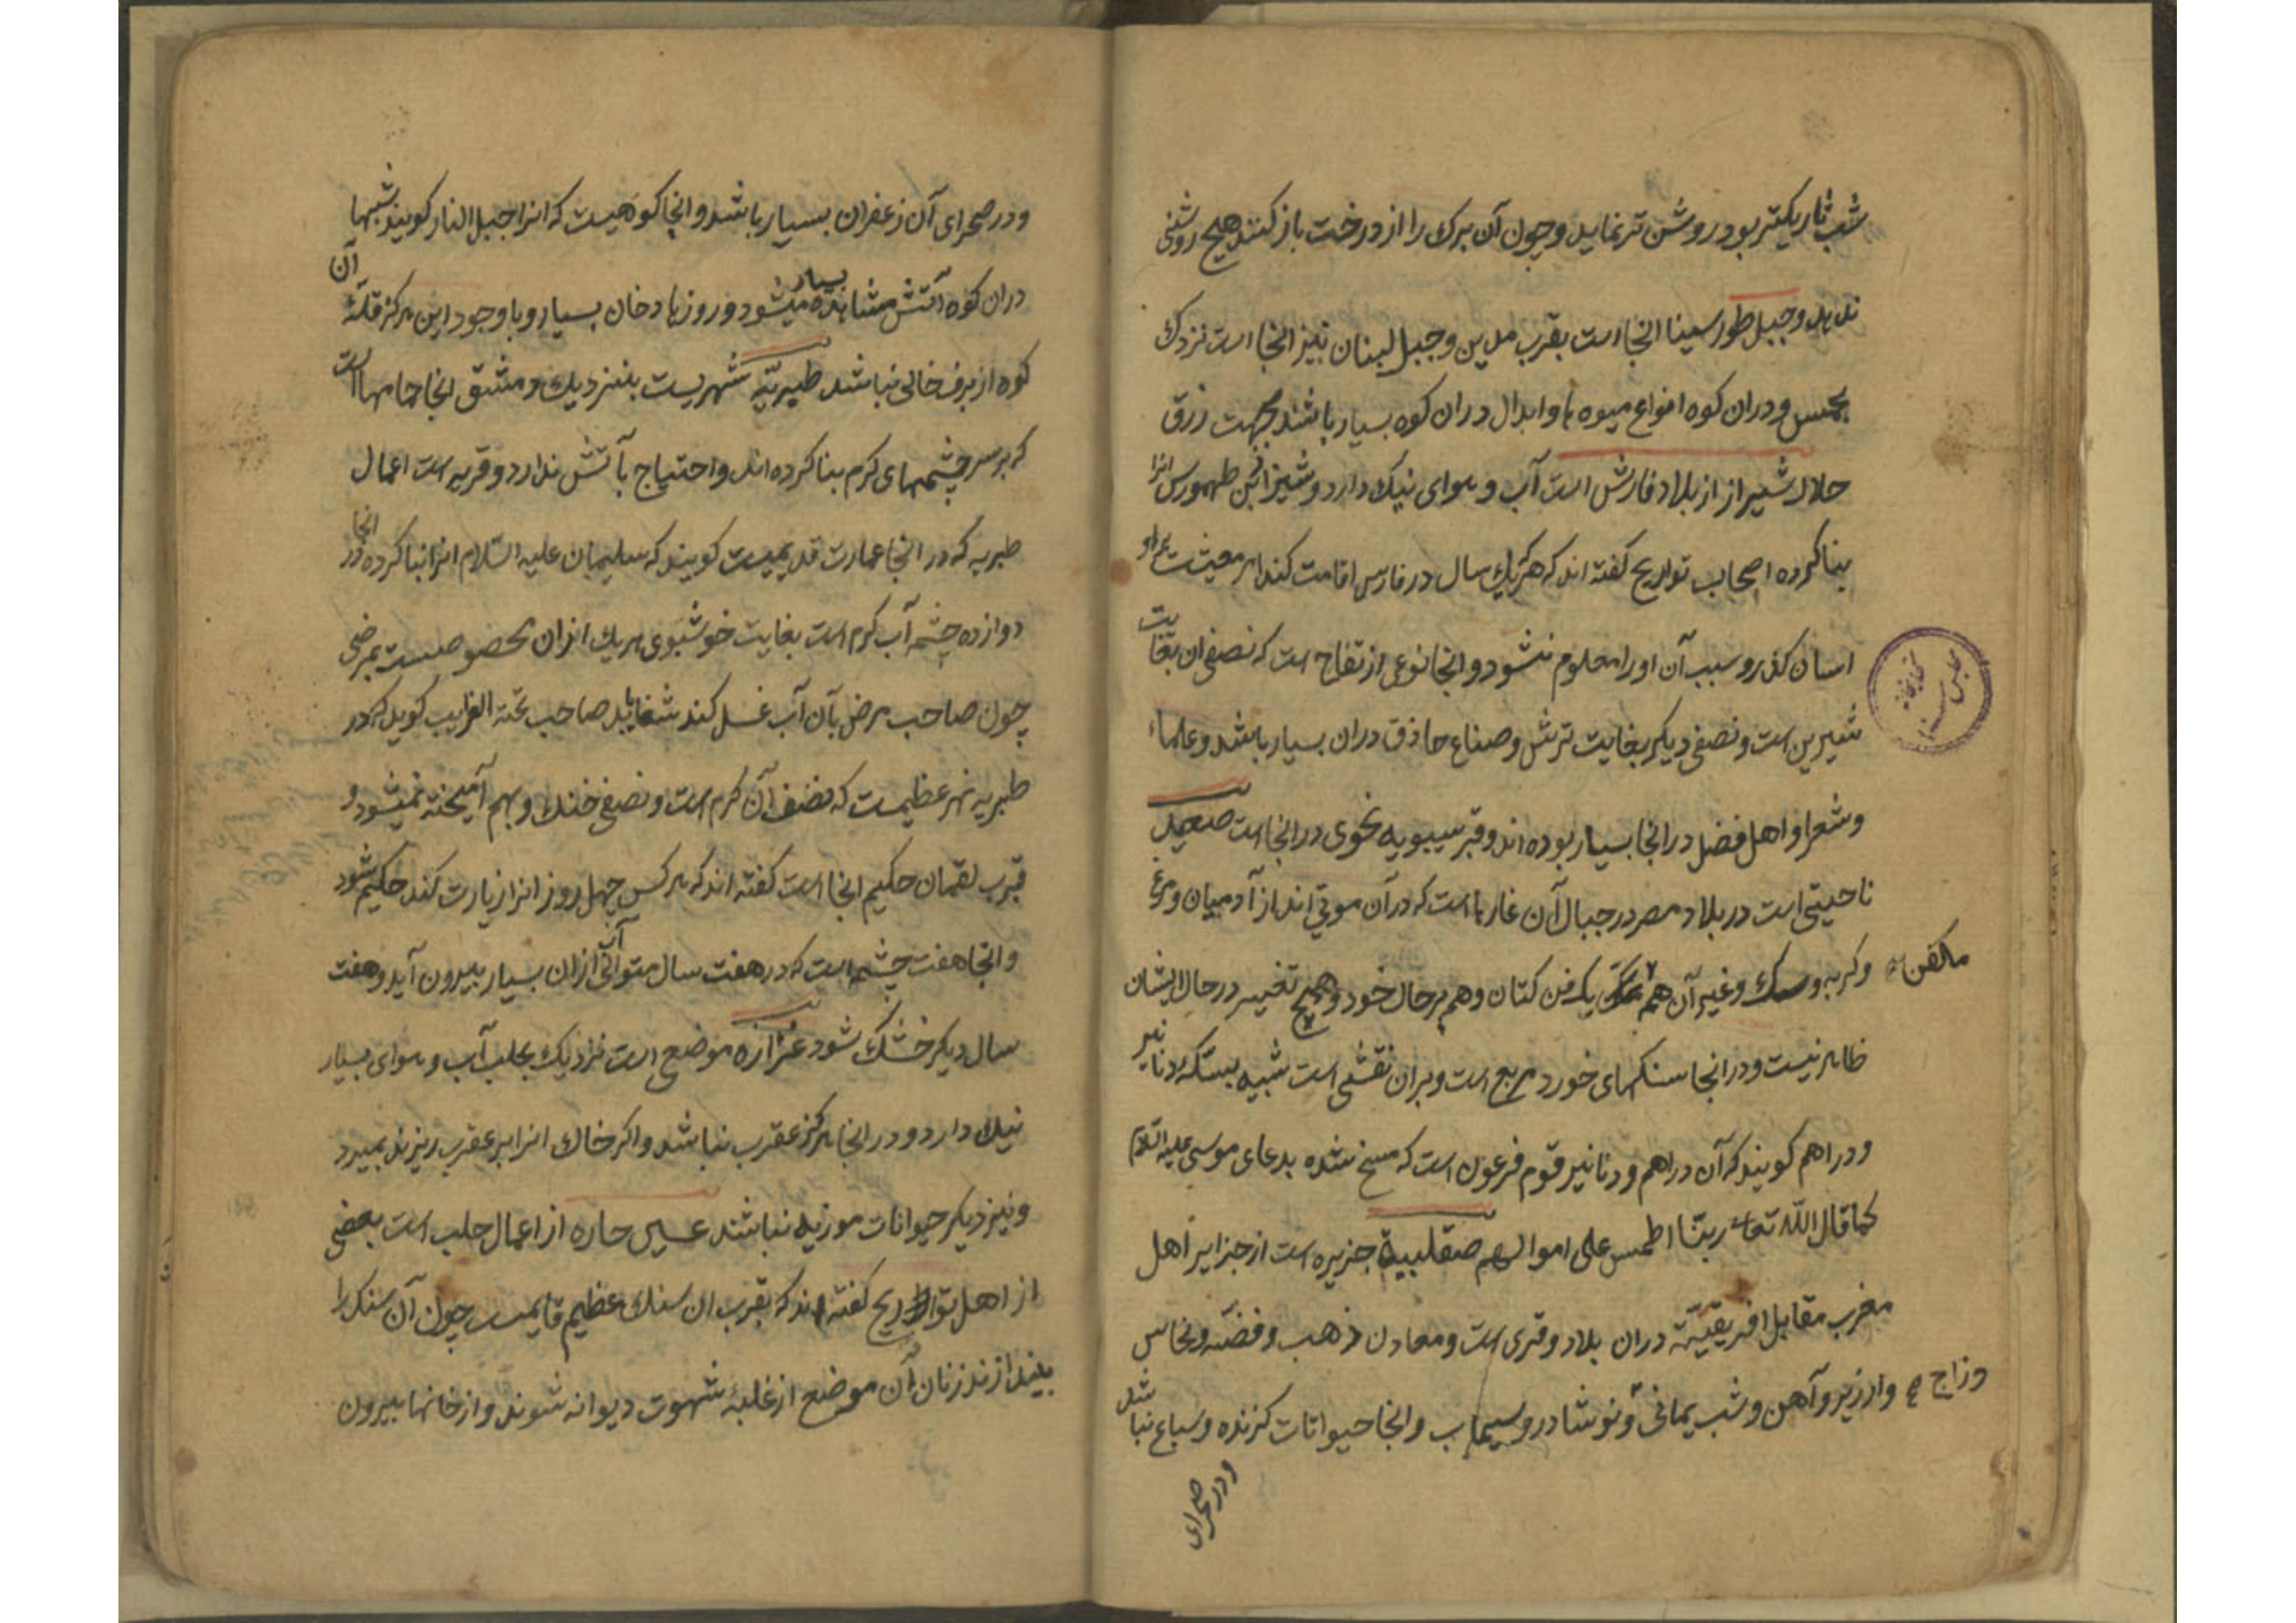 شب تاریکتر بود روشن تر نماید و چون آن برک را از درخت باز کنند هیچ روشنی
ندهد و جبل طور سینا انجا است بقرب مدین و جبل لبنان نیز انجا است نزدک
بحمص و دران کوه انواع میوه ها و ابدال دران کوه بسیار باشند بجهت رزق
حلال شیراز از بلاد فارش است آب و هوای نیک دارد و شیراز بن طهمورس انرا
بنا کرده اصحاب تواریخ کفته اند که هر یک سال در فارس اقامت کند
اسان کذرد و سبب آن او را معلوم نشود و انجا نوعی از تفاح است که نصفی ان بغایت
شیرین است و نصفی دیکر بغایت ترش و صناع حاذق دران بسیار باشد و علماء
و شعرا و اهل فضل در انجا بسیار بوده اند و قبر سیبویه نحوی در انجا است صعید
ناحیتی است در بلاد مصر در جبال آن غارها است که در آن موتی اند از آدمیان و مرغ
و کربه و سک و غیر آن همه مکفن یک فن کتان و هم بر حال خود و هیچ تغییر در حال ایشان
ظاهر نیست و در انجا سنکهای خورد مربع است و بران نقشی است شبیه بسکه دنانیر
و دراهم کویند که آن دراهم و دنانیر قوم فرعون است که مسخ شده بدعای موسی علیه السلام
کما قال الله تعا ربنا اطمس علی اموالهم صقلیه جزیره است از جزایر اهل
مغرب مقابل افریقیّه دران بلاد و قری است و معادن ذهب و فضّه و نحاس
و ارزیز و آهن و شب یمانی و نوشادر و سیماب و انجا حیوانات کزنده و سباع نباشد
و زاج
ودر صحرای
و در صحرای آن زعفران بسیار باشد و انجا کوهیست که انرا جبل النار کویند شبها
دران کوه آتش بسیار مشاهده میشود و روزها دخان بسیار و با وجود این هرکز قلّهٔ آن
کوه از برف خالی نباشد طبریّه شهریست بنزدیک دمشق انجا حمامها است
که بر سر چشمهای کرم بنا کرده اند و احتیاج بآتش ندارد و قریه است اعمال
طبریه که در انجا عمارت قدیمیست کویند که سلیمان علیه السّلام انرا بنا کرده در انجا
دوازده چشمه آب کرم است بغایت خوشبوی هریک ازان مخصوصست بمرضی
چون صاحب مرض بآن آب غسل کند شفا یابد صاحب تحفه الغرایب کوید که در
طبریه نهر عظیمست که نصف آن کرم است و نصفی خنک و بهم آمیخته نمیشود و
قبر لقمان حکیم انجا است کفته اند که هر کس چهل روز انرا زیارت کند حکیم شود
و انجا هفت چشمه است که در هفت سال متوالی آب ازان بسیار بیرون آید و هفت
سال دیکر خشک شود عزازه موضعی است نزدیک بحلب آب و هوای بسیار
نیک دارد و در انجا هرکز عقرب نباشد و اکر خاک انرا بر عقرب ریزند بمیرد
و نیز دیکر حیوانات موزیه نباشند عین حاره از اعمال حلب است بعضی
از اهل تواریخ کفته اند که بقرب ان سنک عظیم قایمست چون آن سنک را
بیندازند زنان آن موضع از غلبهٔ شهوت دیوانه شوند و از خانها بیرون